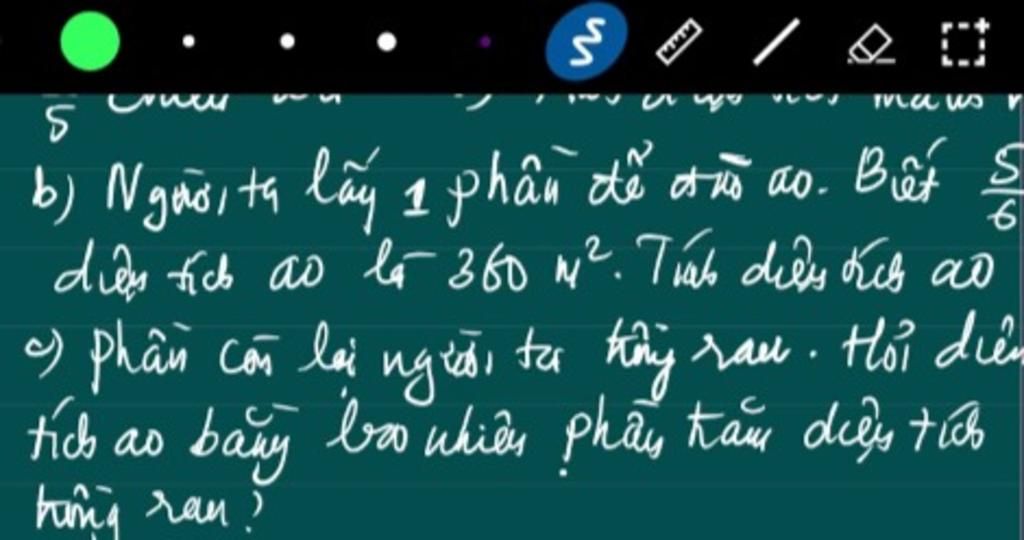 b) Người ta lấy 1 phần để đào ao. Biết 5/6
diện tích ao là 360 m². Tính diện tích ao
c) phần còn lại người ta trồng rau. Hỏi diện
tích ao bằng bao nhiêu phần trăm diện tích
trồng rau?